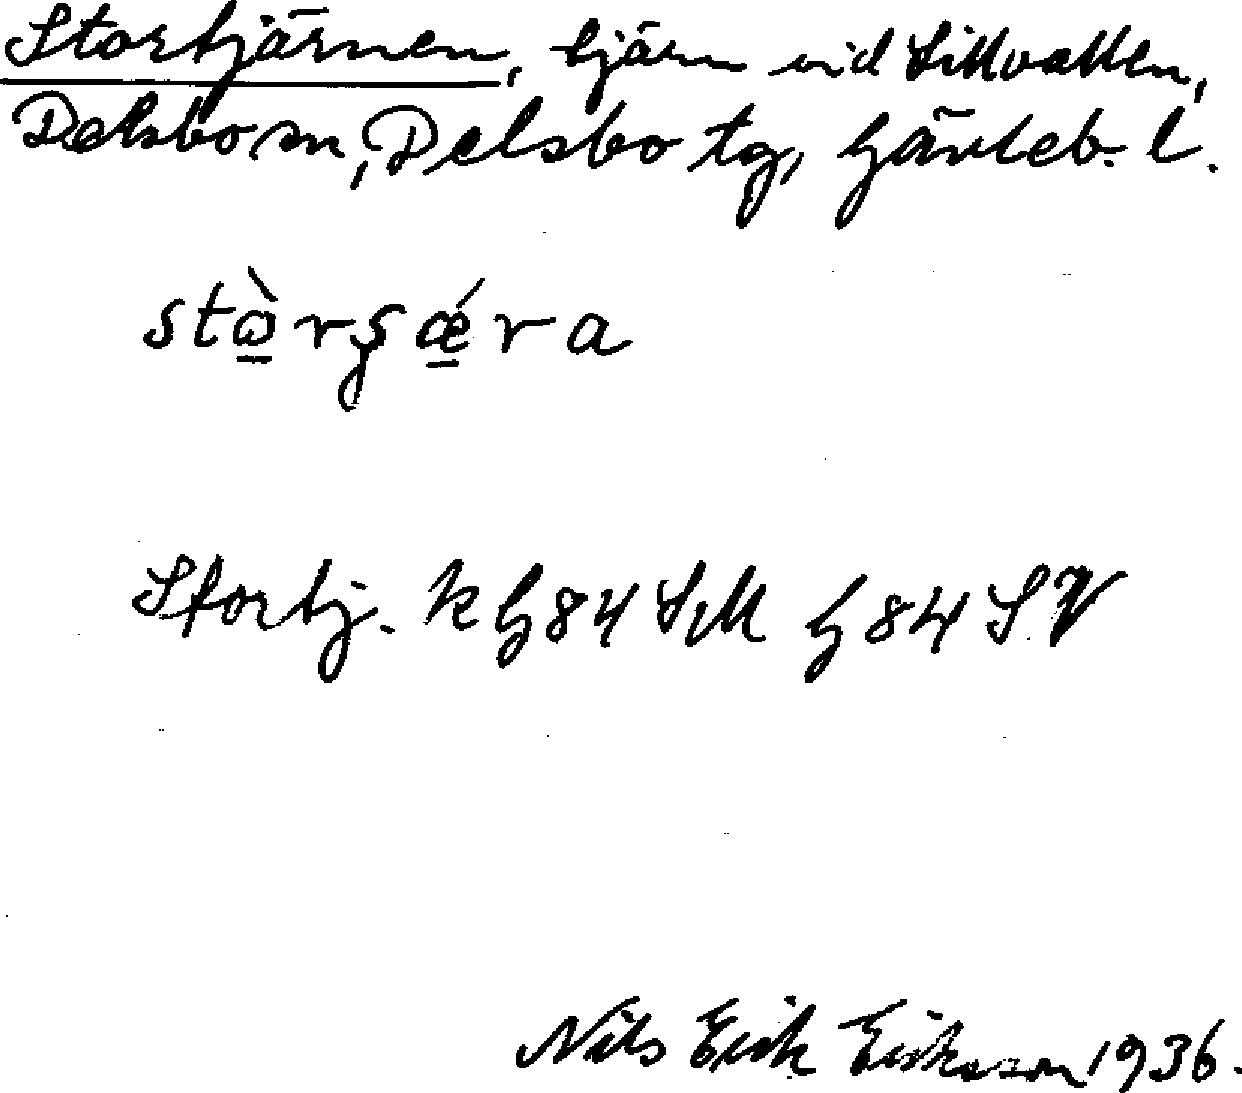 Stortjärnen, tjärn vid Sillvallen,
Delsbo sn, Delsbo tg, Gävleb. l.
stɷ̲̀rʂǽ̲ra
Stortj. k G84 SM G 84 SV
Nils Erik Eriksson 1936.